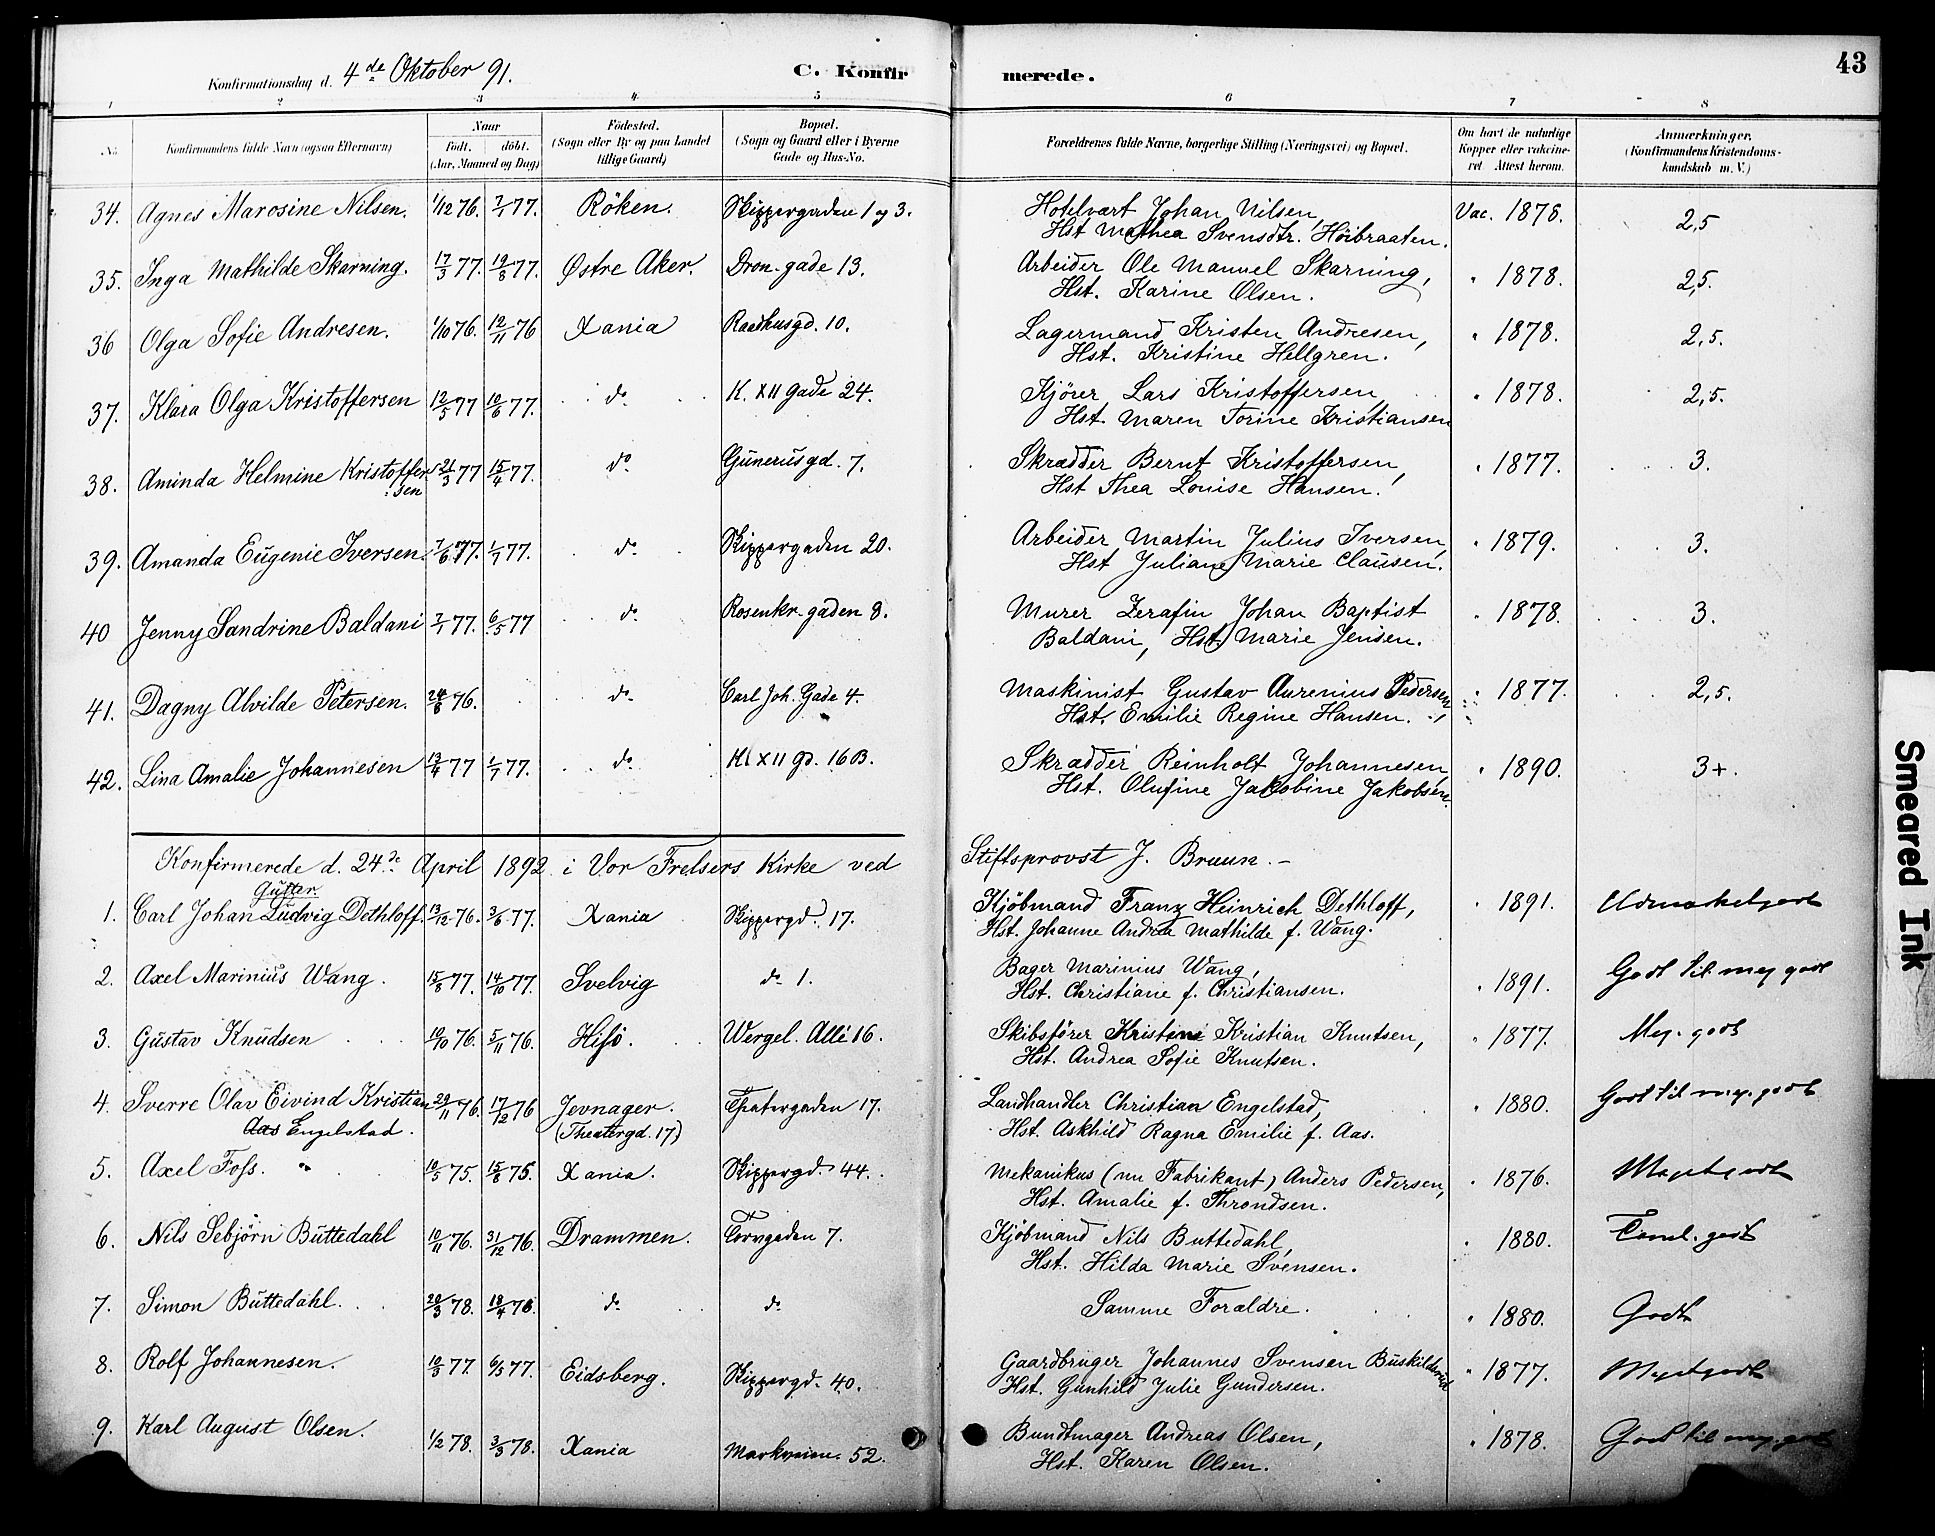 43
Konfirmationsdag d. 4de Oktober 91. C. Konfirmerede.
1 2 3 4 5 6 7 8
No. Konfirmandens fulde Navn (ogsaa Efternavn) Naar födt. döbt. (Aar, Maaned og Dag) Födested. (Sogn eller By og paa Landet tillige Gaard) Bopæl. (Sogn og Gaard eller i Byerne Gade og Hus-No. Forældrenes fulde Navne, borgerlige Stilling (Næringsvei) og Bopæl. Om havt de naturlige Kopper eller vakcineret. Attest herom. Anmærkninger. (Konfirmandens Kristendomskundskab m. V.)
34. Agnes Marosine Nilsen. 1/12 76. 7/1 77. Röken. Skippergaden 1 og 3. Hotelvært Johan Nilsen, Vac. 1878. 2,5
Hst Mathea Svensdtr. Höibraaten.
35. Inga Mathilde Skarning. 17/3 77. 19/8 77. Østre Aker. Dron. gade 13. Arbeider Ole Manuel Skarning, " 1878. 2,5.
Hst. Karine Olsen.
36 Olga Sofie Andresen. 1/10 76. 12/11 76 Xania Raadhusgd. 10. Lagermand Kristen Andresen, " 1878. 2,5.
Hst. Kristine Hellgren.
37. Klara Olga Kristoffersen 12/5 77 10/6 77. do K. XII gade 24. Kjörer Lars Kristoffersen, " 1878. 2,5.
Hst. Maren Torine Kristiansen
38. Aminda Helmine Kristoffersen 21/3 77 15/4 77. do Gunerusgd. 7. Skrædder Bernt Kristoffersen, " 1877. 3.
Hst Thea Louise Hansen.
39. Amanda Eugenie Iversen. 7/6 77. 1/7 77. do Skippergaden 20. Arbeider Martin Julius Iversen, " 1879. 3.
Hst Juliane Marie Clausen.
40 Jenny Sandrine Baldani 7/1 77. 6/5 77 do Rosenkr. gaden 8. Murer Zerafin Johan Baptist " 1878. 3.
Baldani, Hst. Marie Jensen.
41. Dagny Alvilde Petersen. 24/8 76. do Carl Joh. Gade 4. Maskinist Gustav Aurenius Pedersen " 1877. 2,5.
Hst. Emilie Regine Hansen.
42. Lina Amalie Johannesen 13/4 77 1/7 77. do K. XII gd. 16B. Skrædder Reinholt Johannesen " 1890. 3+.
Hst. Olufine Jakobine Jakobsen.
Konfirmerede d. 24de April 1892 i Vor Frelsers Kirke ved Stiftsprovst J. Bruun. –
1. Carl Johan Ludvig Dethloff. 13/12 76. 3/6 77. Xania Skippergd. 17. Kjöbmand Franz Heinrich Dethloff, " 1891. Udmærket godt
Hst. Johanne Andrea Mathilde f. Wang.
2. Axel Marinius Wang. 15/8 77. 14/10 77. Svelvig do 1. Bager Marinius Wang, " 1891. Godt til meg godt
Hst. Christiane f. Christiansen.
3. Gustav Knudsen 19/10 76. 5/11 76. Hisö. Wergel. Allé 16. Skibsförer Kristian Knutsen, " 1877. Meg. godt
Hst. Andrea Sofie Knutsen.
4. Sverre Olav Eivind Kristian 29/11 76. 17/12 76 Jevnager. Theatergaden 17. Landhandler Christian Engelstad, " 1880. Godt til meg. godt
Aas Engelstad. (Theatergd. 17) Hst. Askhild Ragna Emilie f. Aas.
5. Axel Foss. 10/5 75. 15/8 75. Xania. Skippergd. 44. Mekanikus (nu Fabrikant) Anders Pedersen, " 1876. Meget godt
Hst. Amalie f. Throndsen.
6. Nils Sebjörn Buttedahl 10/11 76. 31/12 76. Drammen. Torvgaden 7. Kjöbmand Nils Buttedahl, " 1880. Teml. godt
Hst. Hilda Marie Svensen.
7. Simon Buttedahl. 20/3 78. 18/4 78. do do Samme Forældre. " 1880. Godt
8. Rolf Johannesen. 10/3 77. 6/5 77. Eidsberg. Skippergd. 40. Gaardbruger Johannes Svensen " 1877. Meget godt
Hst. Gunhild Julie Gundersen.
9. Karl August Olsen. 1/2 78. 3/3 78. Xania Markveien 52. Bundtmager Andreas Olsen, " 1878. Godt til meg. godt
Hst. Karen Olsen.
Smeared Ink